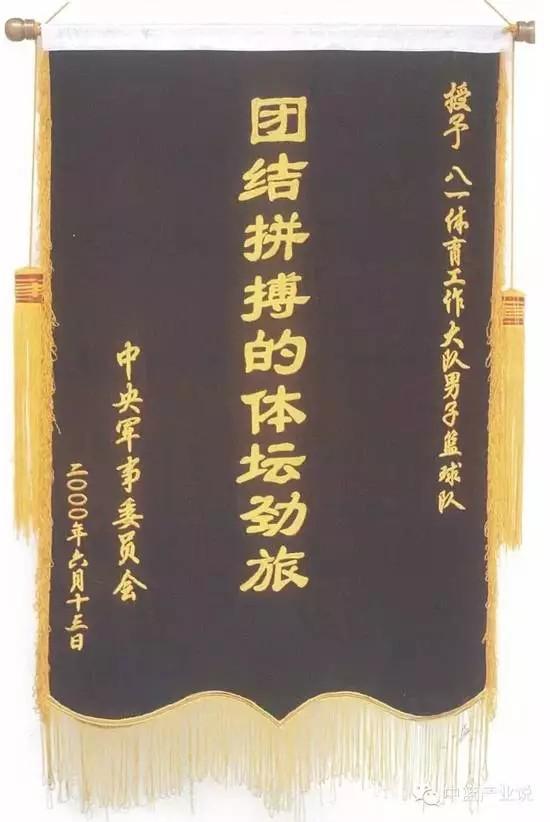 授予 八一体育工作大队男子篮球队
团结拼搏的体坛劲旅
中央军事委员会
二〇〇〇年六月十三日
中篮产业说